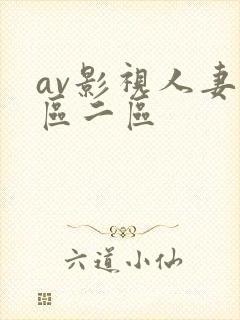 av影視人妻
區二區
六道小仙